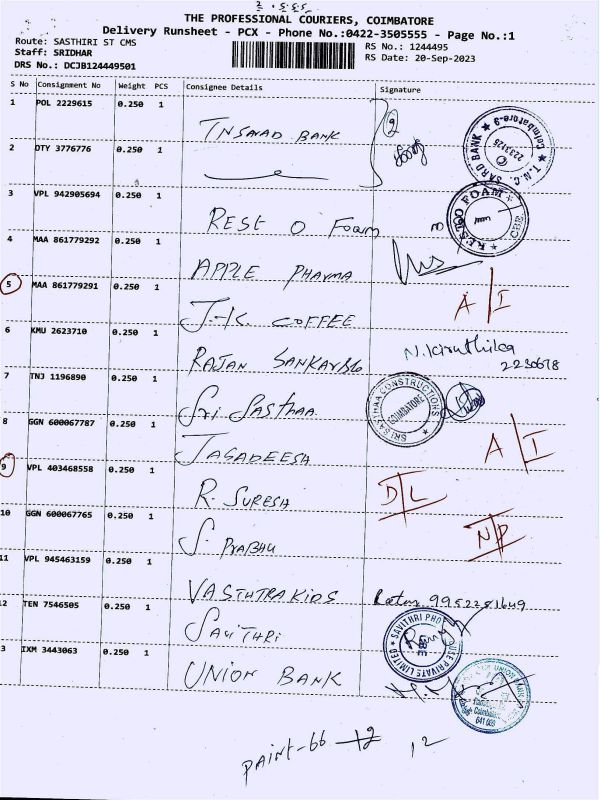 THE PROFESSIONAL COURIERS, COIMBATORE
Delivery Runsheet - PCX - Phone No.:0422-3505555 - Page No.:1
Route: SASTHIRI ST CMS
Staff: SRIDHAR
DRS No.: DCJB124449501
RS No.: 1244495
RS Date: 20-Sep-2023
S No Consignment No Weight PCS Consignee Details Signature
1 POL 2229615 0.250 1 TNSAVAD BANK
2 DTY 3776776 0.250 1
3 VPL 942905694 0.250 1 REST O Foam
4 MAA 861779292 0.250 1 APPLE PHARMA
5 MAA 861779291 0.250 1 J-K COFFEE A/I
6 KMU 2623710 0.250 1 RAJAN SANKAR N.Kiruthika
2230678
7 TNJ 1196890 0.250 1 Sri SASTHAA SRI SASTHAA CONSTRUCTIONS COIMBATORE
8 GGN 600067787 0.250 1 JAGADEESH A/I
9 VPL 403468558 0.250 1 R. SURESH D/L
10 GGN 600067765 0.250 1 S. PRABHU N/P
11 VPL 945463159 0.250 1 VASTHTRA KIDS 9952281649
12 TEN 7546505 0.250 1 SAVITHRI SAVITHRI PHOTO HOUSE PRIVATE LIMITED
3 IXM 3443063 0.250 1 UNION BANK
PAINT-66 12 12